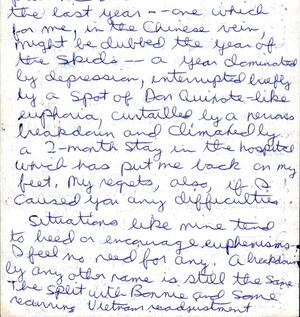 the last year -- one which
for me, in the Chinese vein,
might be dubbed the year of
the skids -- a year dominated
by depression, interrupted briefly
by a spot of Don Quixote-like
euphoria, curtailed by a nervous
breakdown and climaxed by
a 2-month stay in the hospital
which has put me back on my
feet. My regrets, also, if I
caused you any difficulties.
Situations like mine tend
to breed or encourage euphemisms.
I feel no need for any. A breakdown
by any other name is still the same.
The split with Bonnie and some
recurring Vietnam readjustment